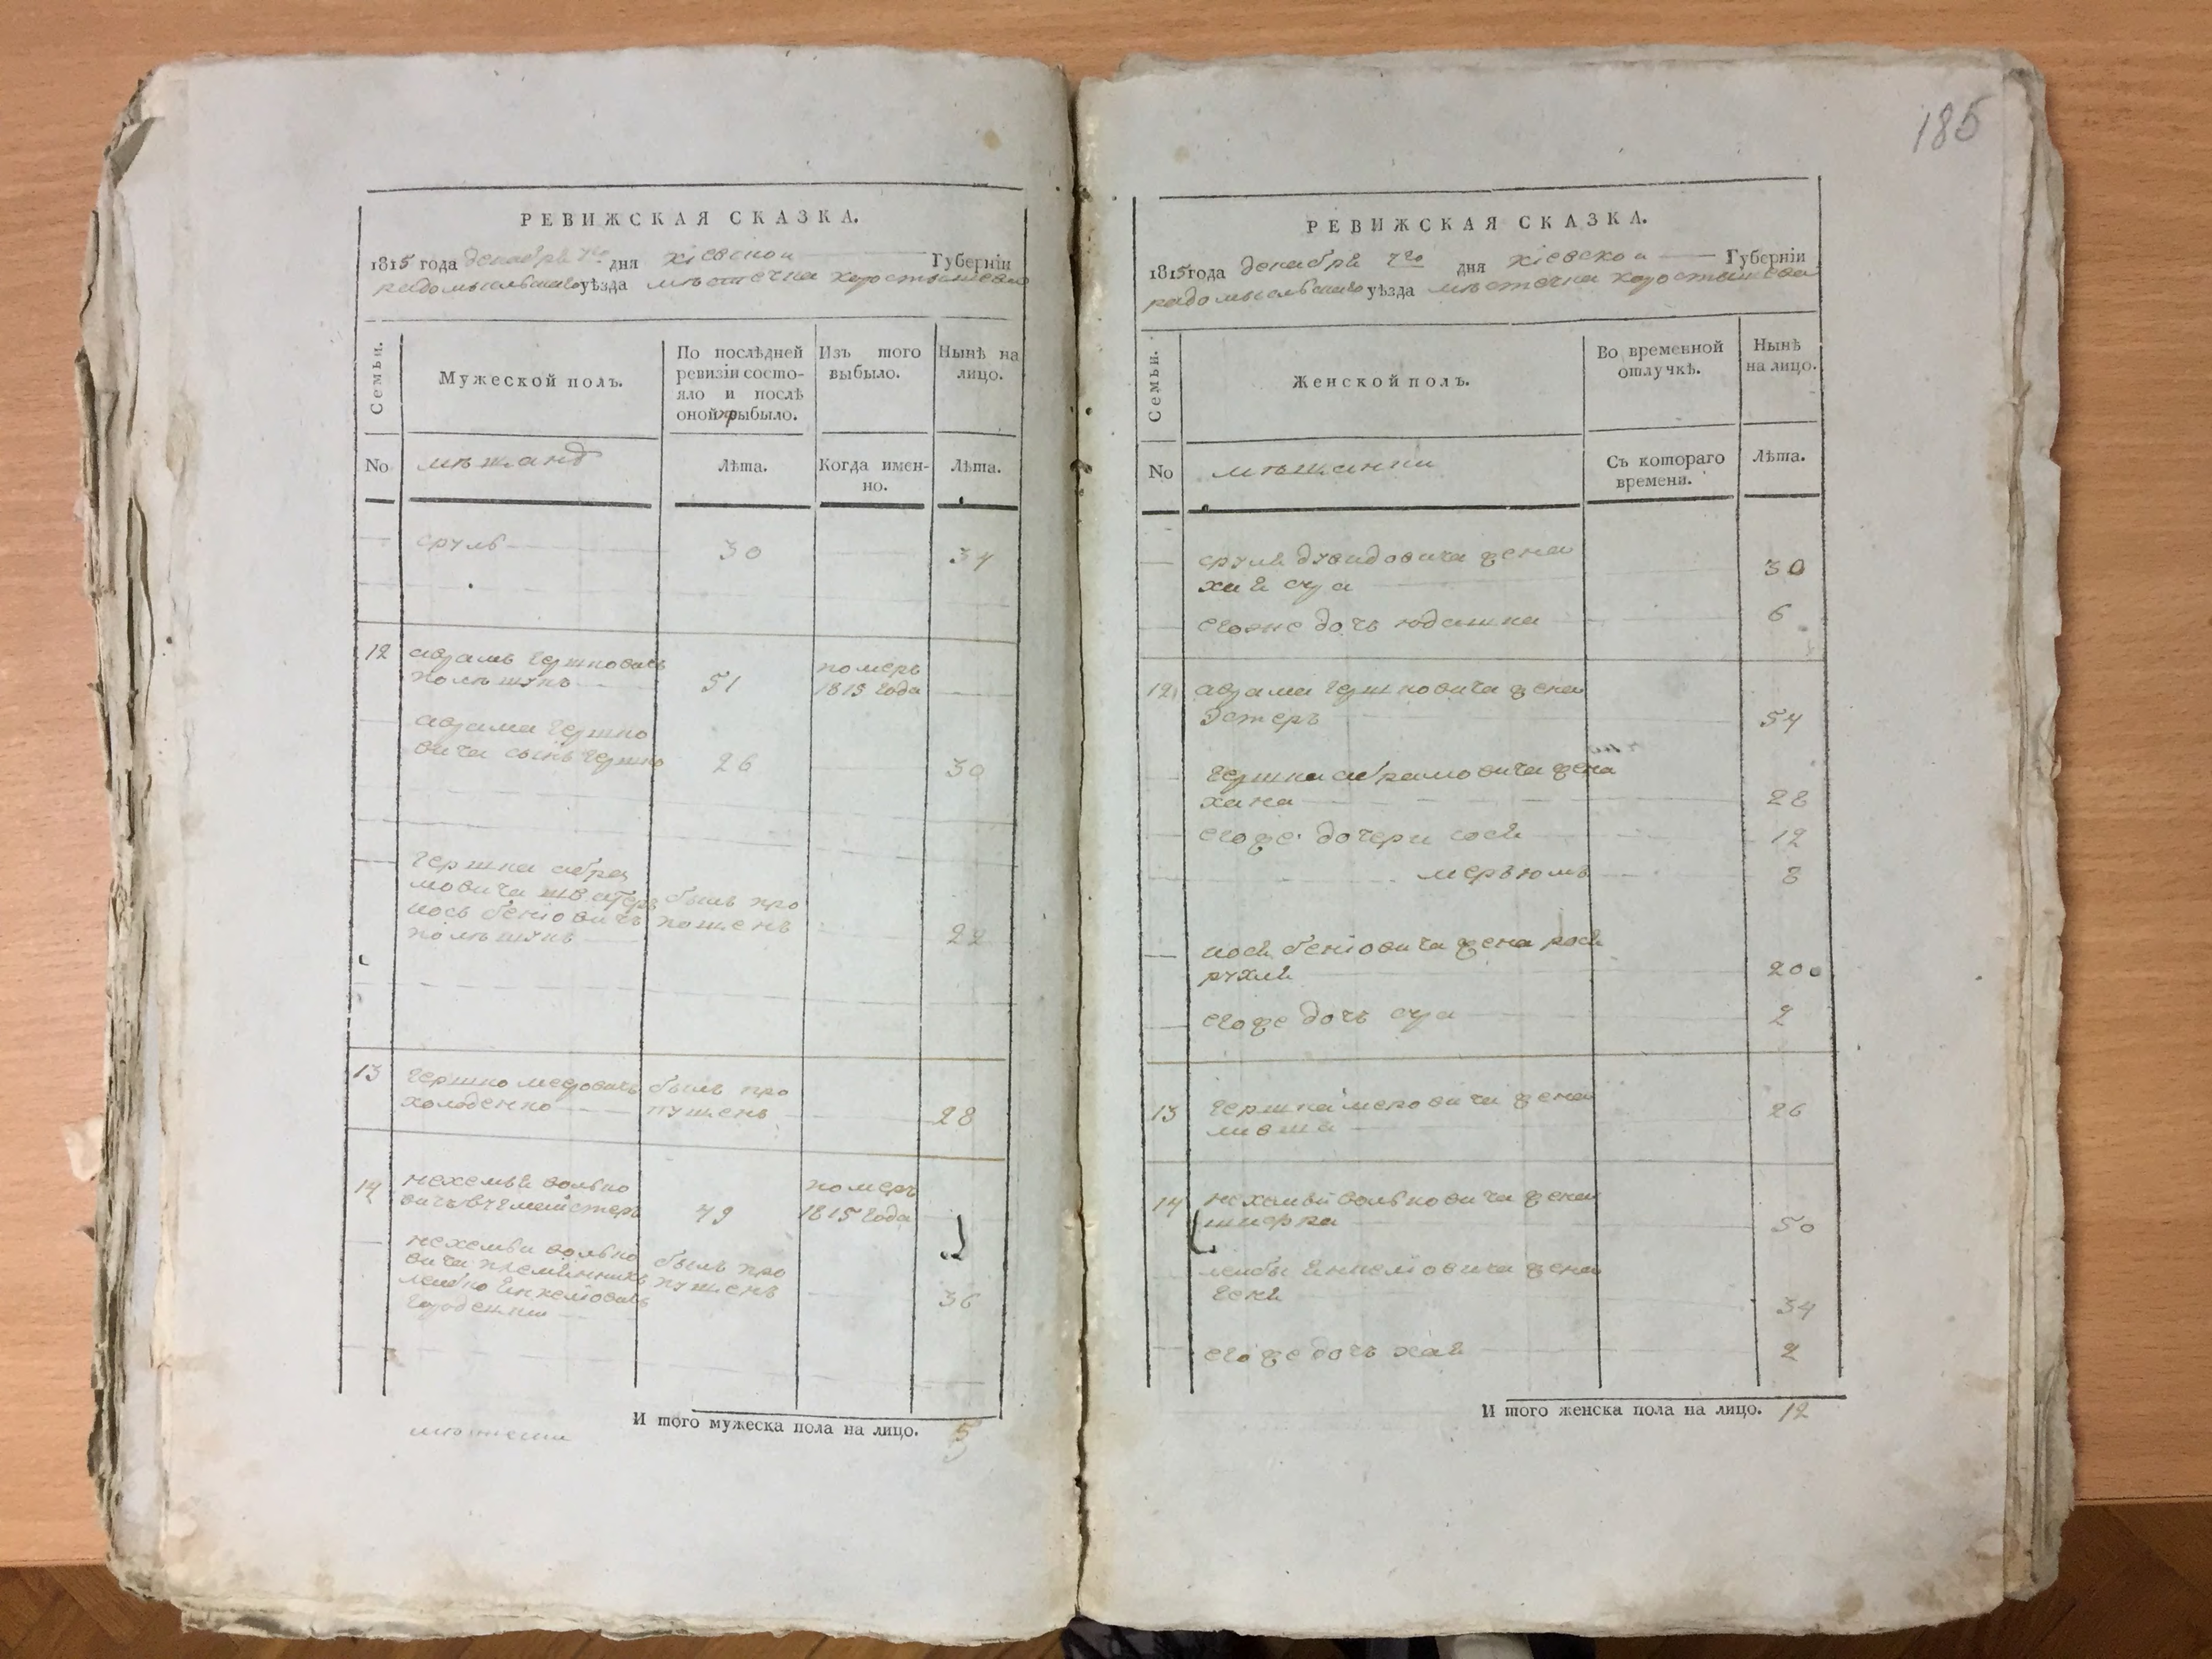 185
РЕВИЖСКАЯ СКАЗКА.
1815 года декабря 7го дня кіевской Губерніи
радомысльскаго уѣзда мѣстечка коростышева
Семьи.
Мужеской полъ.
По послѣдней
ревизіи состо-
яло и послѣ
оной прибыло.
Изъ того
выбыло.
Нынѣ на
лицо.
No
мѣщанъ
Лѣта.
Когда имен-
но.
Лѣта.
сруль 30 34
12 абрамъ гершковичь
полѣщукъ 51 померъ
1815 года
абрама гершко
вича сынъ гершко 26 30
гершка абра
мовича шваґеръ былъ про
иось беніовичъ пощенъ
полѣщукъ 22
13 гершко меровичъ былъ про
холоденко пущенъ 28
14 нехемья волько
вичъ 49 померъ
1815 года
нехемьи волько
вича племѣнникъ былъ про
лейбко пущенъ
36
И того мужеска пола на лицо. 5
РЕВИЖСКАЯ СКАЗКА.
1815 года декабря 7го дня кіевской Губерніи
радомысльскаго уѣзда мѣстечка коростышева
Семьи.
Женской полъ.
Во временной
отлучкѣ.
Нынѣ
на лицо.
No
мѣщанки
Съ котораго
времени.
Лѣта.
сруля дувидовича жена
хая сура 30
его же дочь юдашка 6
12 абрама гершковича жена
эстеръ 54
гершка абрамовича жена
хана 28
его же дочери сося 12
меръюмъ 8
иося беніовича жена рося
рухля 20
его же дочь сура 2
13 гершка меровича жена
ливша 26
14 нехемьи вольковича жена
50
лейбы жена
геня 34
его же дочь хая 2
И того женска пола на лицо. 12